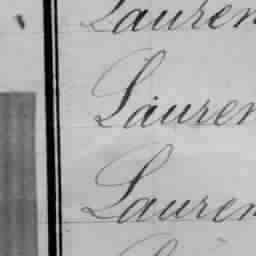 Lauren
Lauren
Lauren